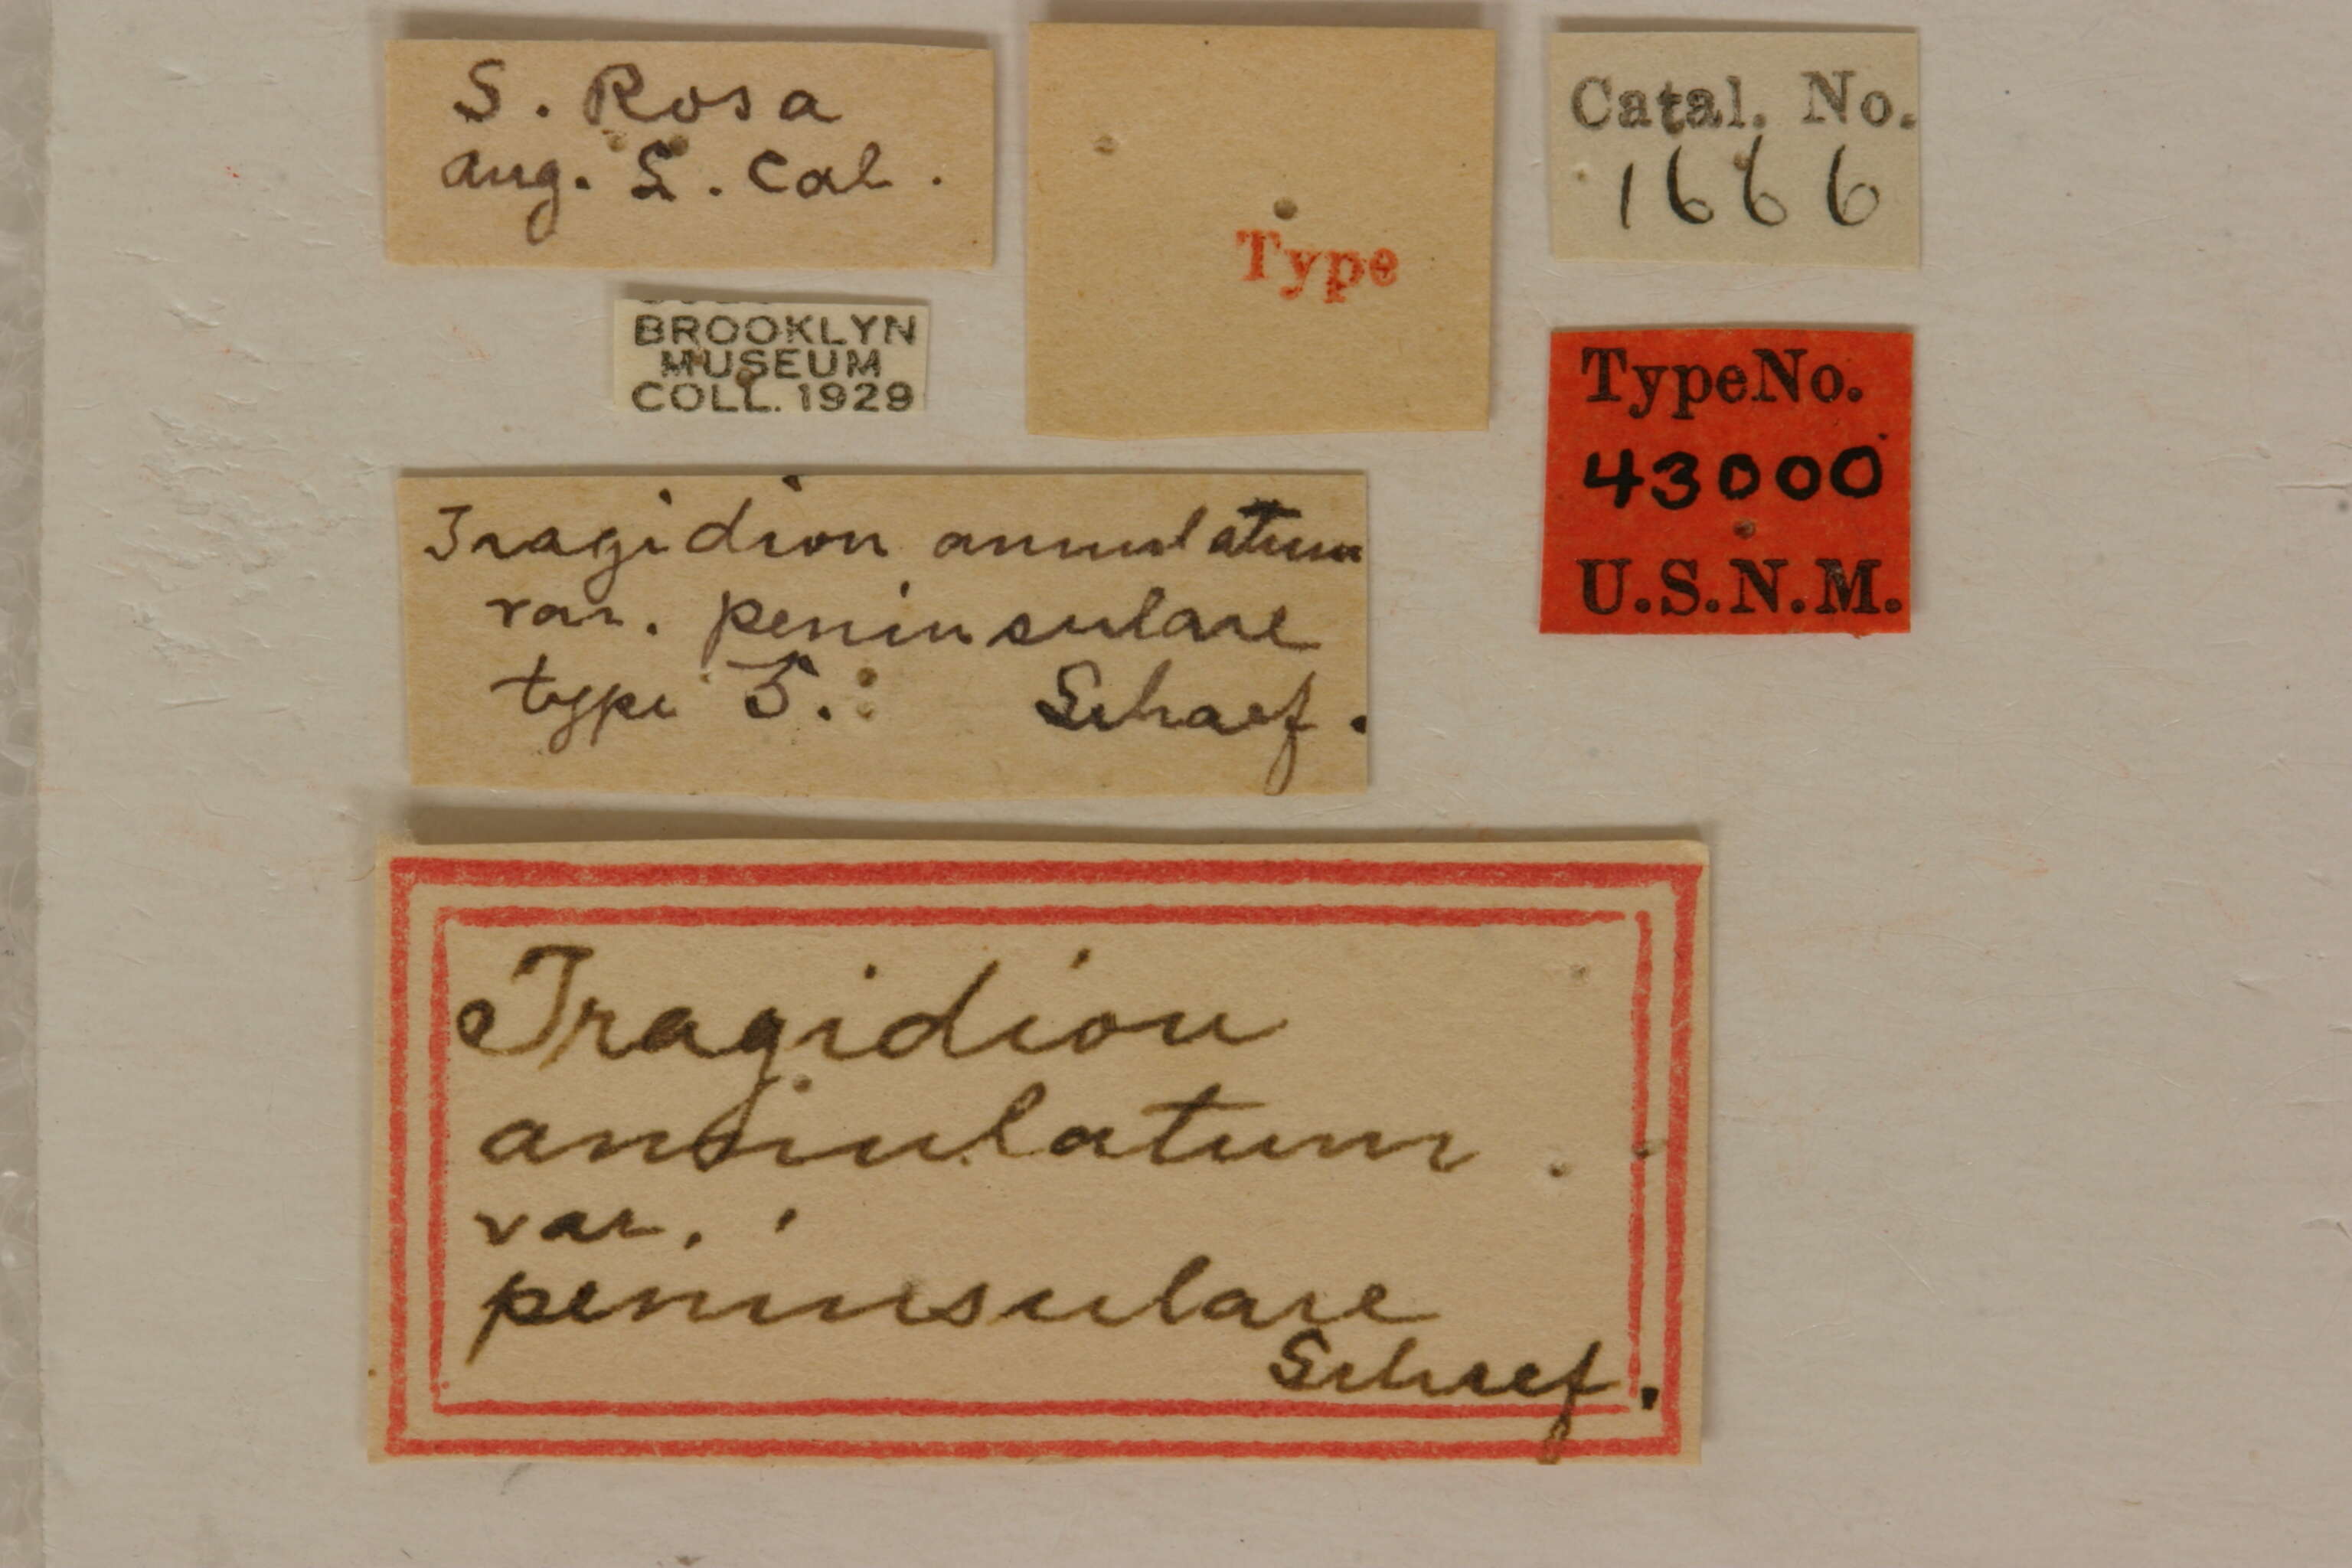 S. Rosa
Aug. L. Cal.
BROOKLYN
MUSEUM
COLL. 1929
Type
Catal. No.
1666
TypeNo.
43000
U.S.N.M.
Tragidion annulatum
var. peninsulare
type Schaef.
Tragidion
annulatum
var.
peninsulare
Schaef.